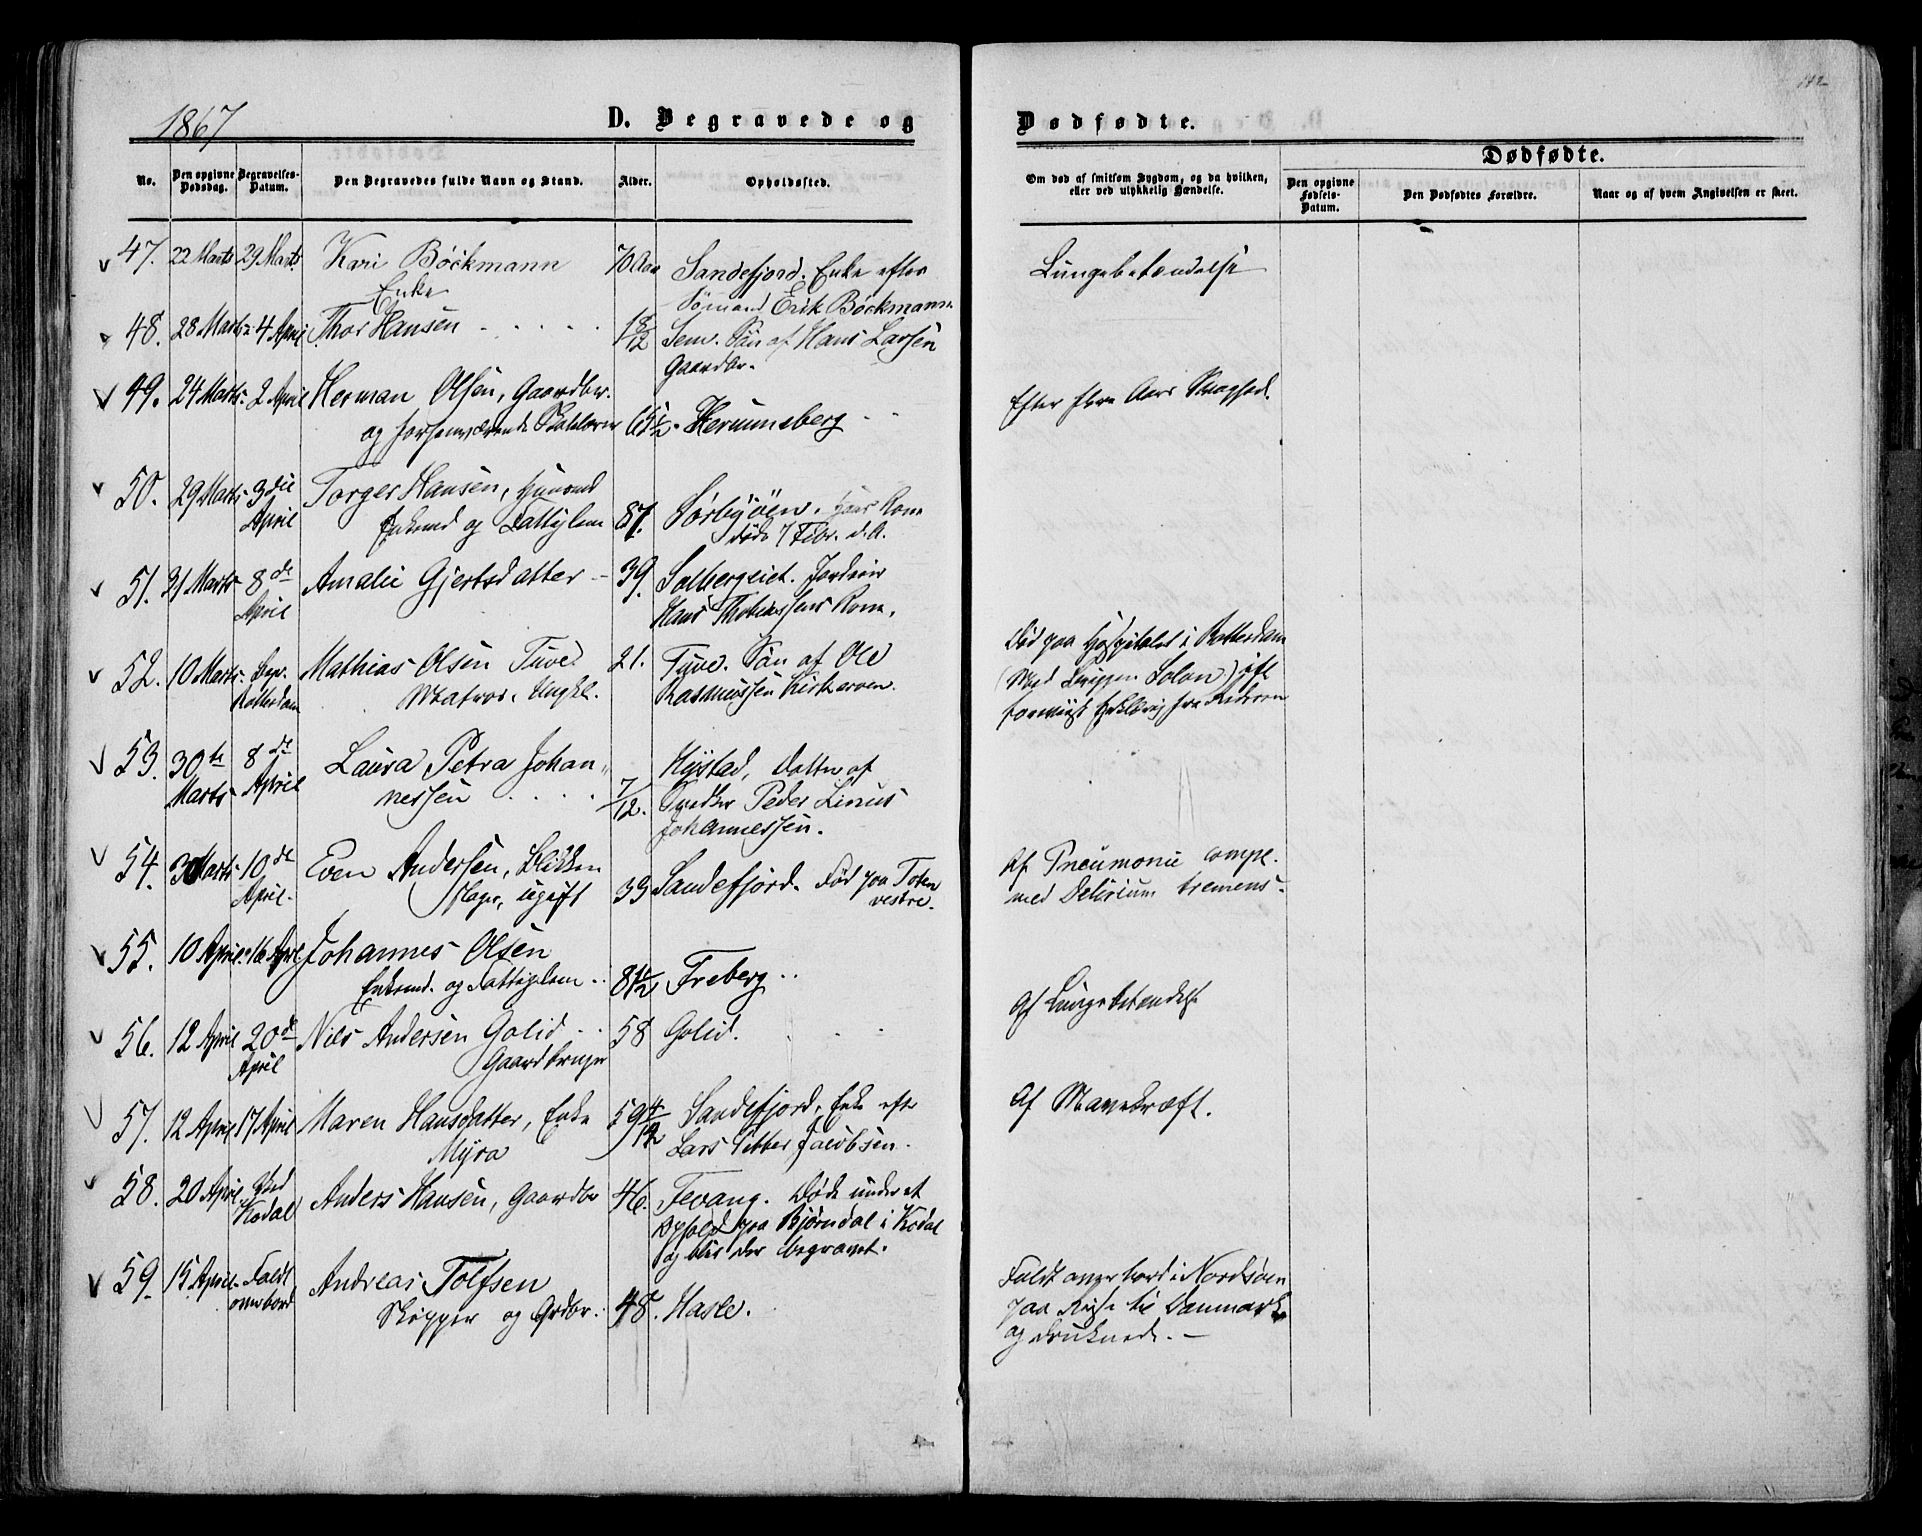 142
1867
D. Begravede og Dødfødte.
Dødfødte.
No. Den opgivne Dødsdag. Begravelses-Datum. Den Begravedes fulde Navn og Stand. Alder. Opholdssted.
Om død af smitsom Sygdom, og da hvilken, eller ved ulykkelig Hændelse.
Den opgivne Fødsels-Datum. Den Dødfødtes Forældre. Naar og af hvem Angivelsen er skeet.
47. 22 Marts 29 Marts Kari Bøckmann 70 Aar Sandefjord. Enke efter Lungebetændelse
Enke Sømand Erik Bøckmann
48. 28 Marts 4 April Thor Hansen 1 8/12 Sem. Søn af Hans Larsen
Gaardbr.
49. 24 Marts 2 April Herman Olsen, Gaardbr. Efter flere Aars Svaghed.
og forhenværende Skolelærer 65 1/2 Herumsberg
50. 29 Marts 3die April Torger Hansen,
Enkemd og Fattiglem 87. Sørbyøen. Hans Kone
døde 7 Febr. d. A.
51. 31 Marts 8de April Amalie Gjertsdatter 39. Solbergeiet. Jordeier
Hans Thobiassens Kone.
52. 10 Marts Begr. Rotterdam Mathias Olsen Tuve. 21. Tuve. Søn af Ole
Matros. Ungkl. Rasmussen Kirkerøen.
Død paa Hospitalet i Rotterdam
(Med Briggen Solon) ift
53. 30te Marts 8de April Laura Petra Johan-
nessen 7/12. Hystad, Datter af
Snedker Peder Linus
Johannessen.
54. 30 Marts 10de April. Even Andersen, Blikken
slager, ugift 33 Sandefjord. Født paa Toten
vestre.
Af Pneumonie compl.
med Delirium tremens.
55. 10 April 16 April Johannes Olsen
Enkemd. og Fattiglem 81 1/2 Freberg Af Lungebetændelse
56. 12 April 20de April Niels Andersen Golid 58 Golid.
Gaardbruger
57. 12 April 17 April Maren Hansdatter, Enke 59 4/12 Sandefjord, Enke efter Af Mavekræft.
Myra Lars Petter Jacobsen.
58. 20 April Ved Kodal Anders Hansen, Gaardbr 46. Tevang. Døde under et
Ophold paa Bjørndal i Kodal
og blev der begravet.
59. 15 April Faldt overbord Andreas Tolfsen
Skipper og Grdbr. 48. Hasle.
Faldt overbord i Nordsøen
paa Reise til Danmark
og druknede.